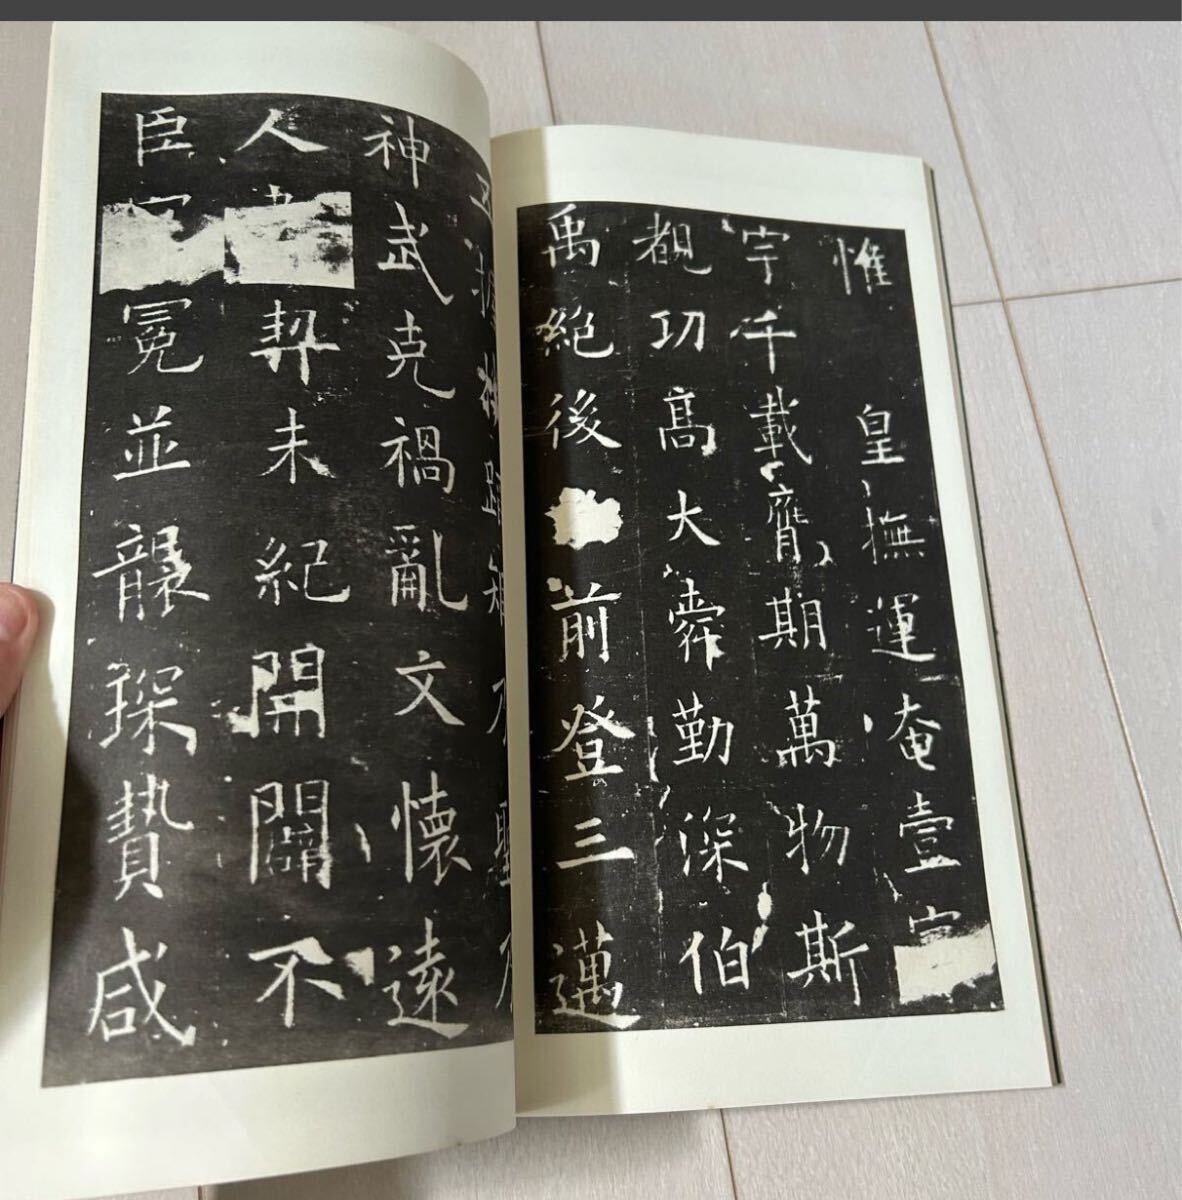 惟皇撫運奄壹
宇千載膺期萬物斯
覩功高大舜勤深伯
禹絕後前登三邁
五握機蹈矩乃聖乃
神武克禍亂文懷遠
人契未紀開闢不
臣冕並襲琛贄咸